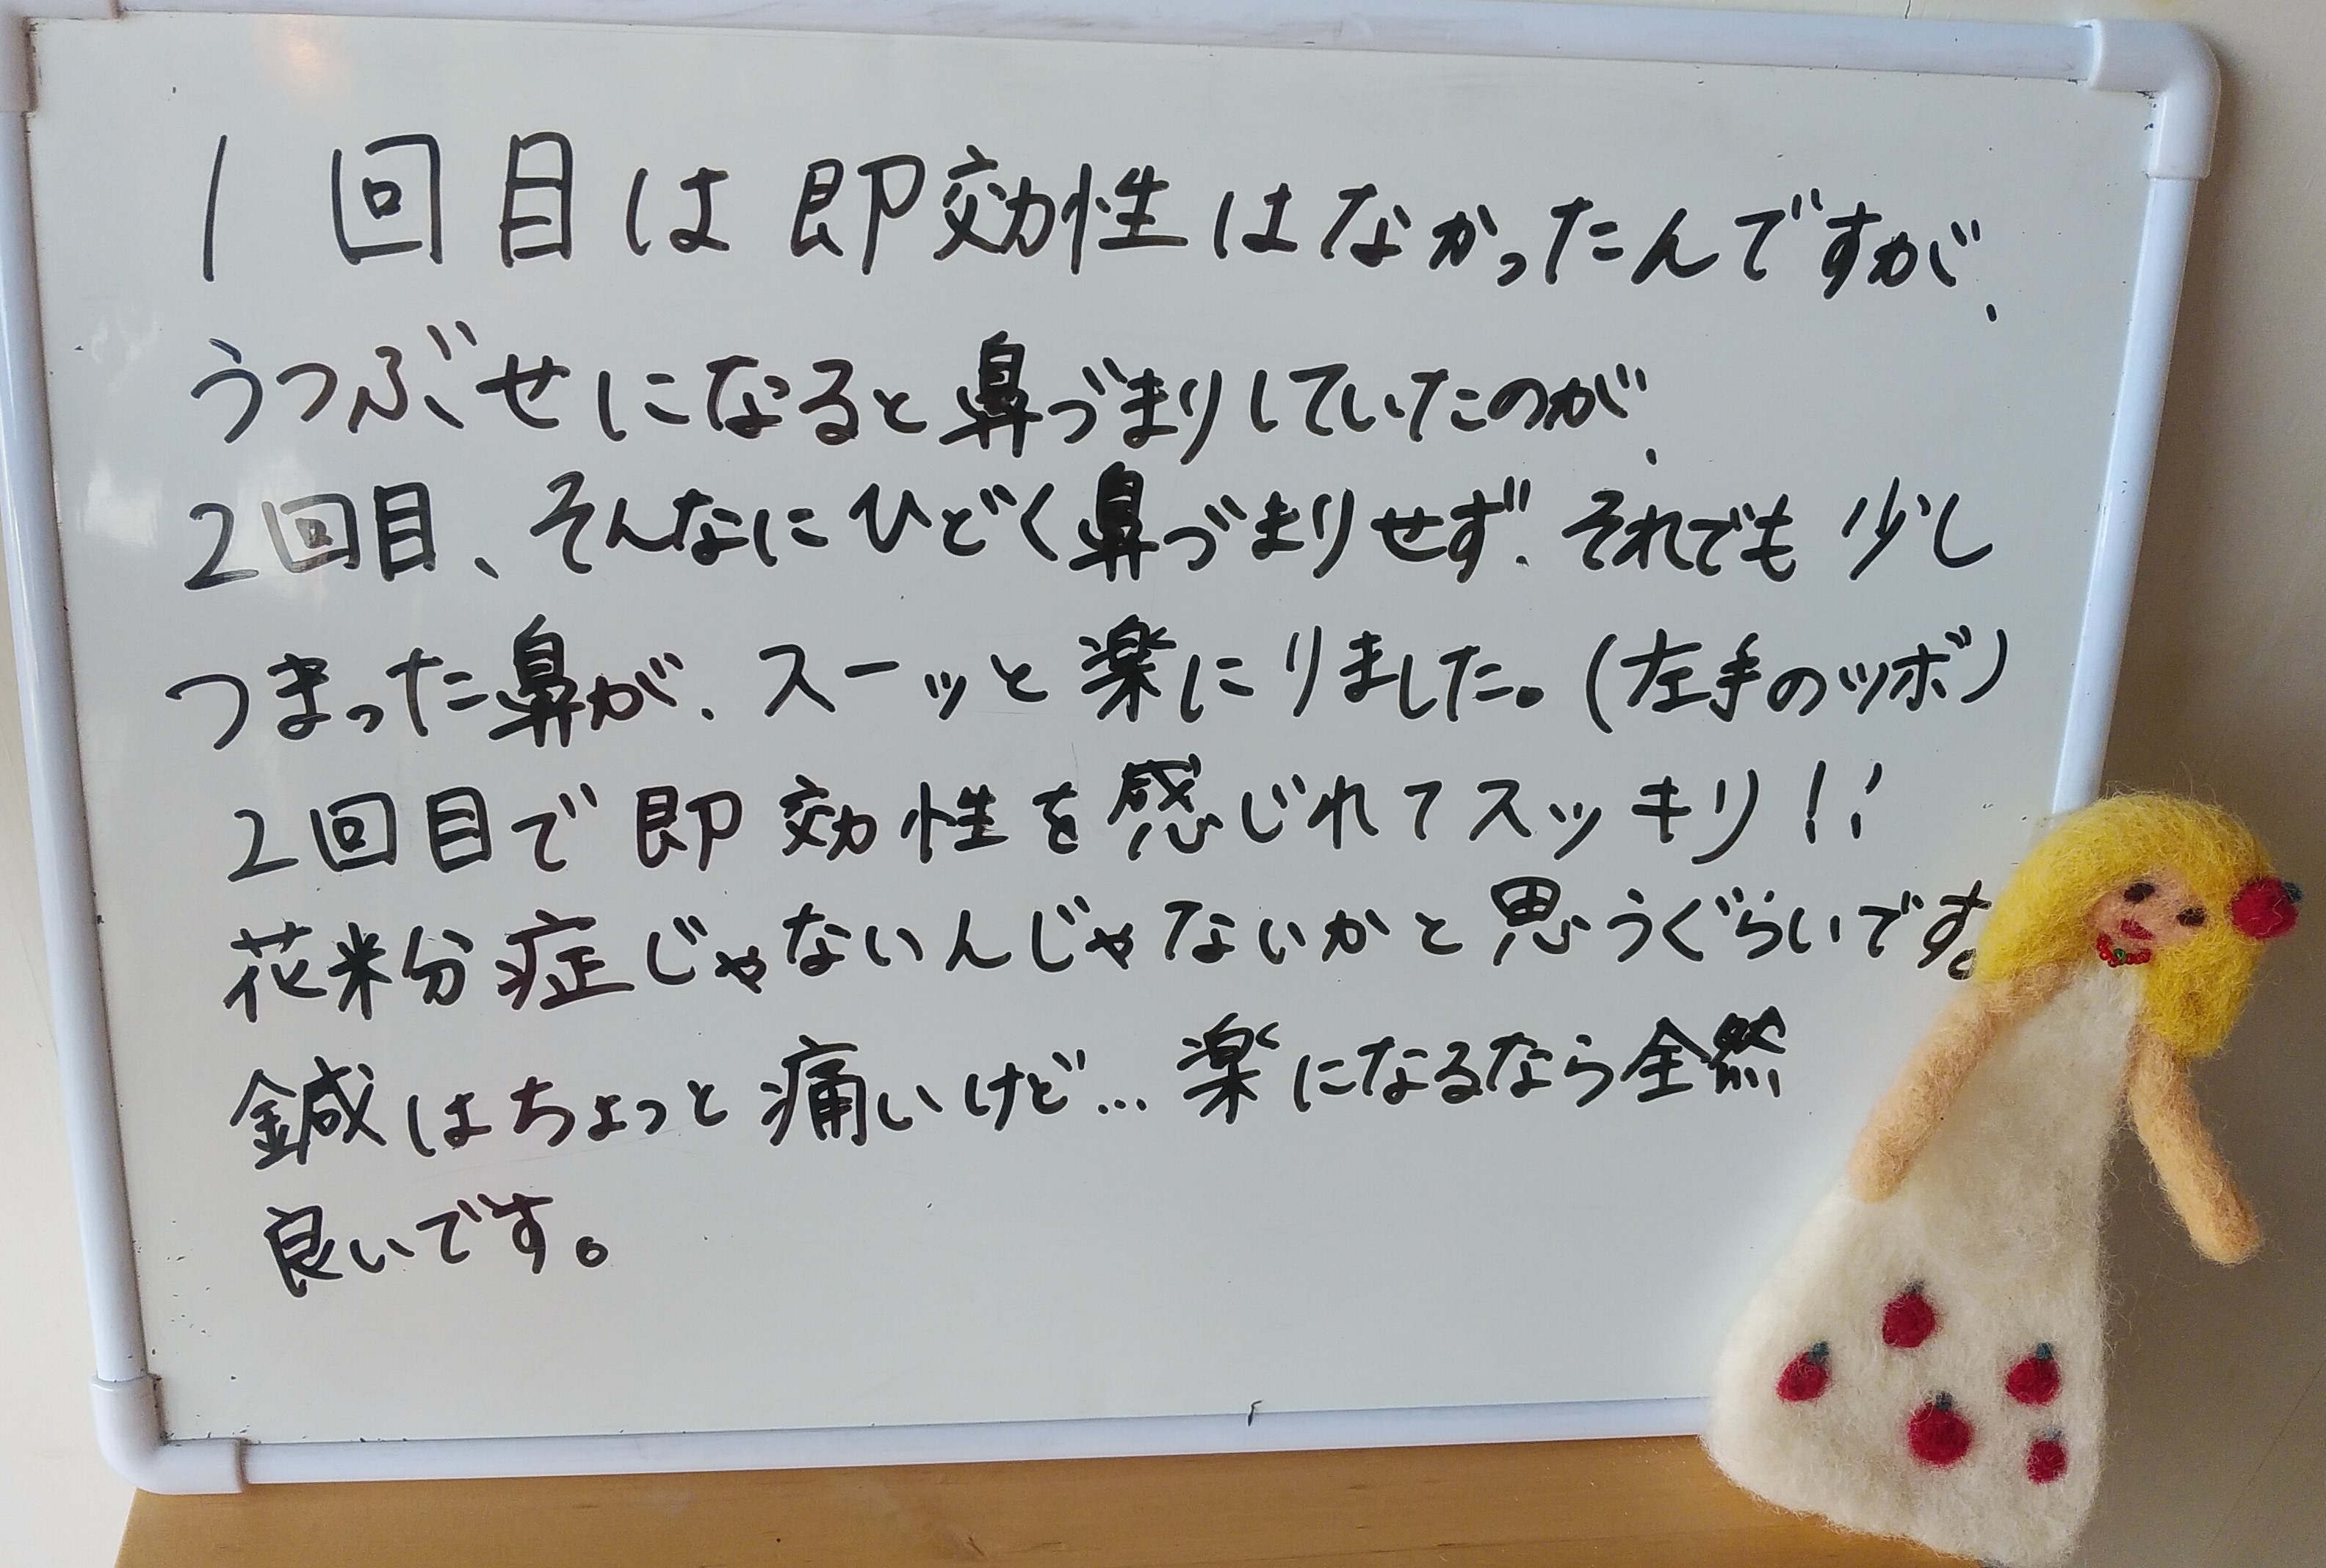 1回目は即効性はなかったんですが、
うつぶせになると鼻づまりしていたのが、
2回目、そんなにひどく鼻づまりせず、それでも少し
つまった鼻が、スーッと楽にりました。(左手のツボ)
2回目で即効性を感じれてスッキリ!!
花粉症じゃないんじゃないかと思うぐらいです。
鍼はちょっと痛いけど…楽になるなら全然
良いです。